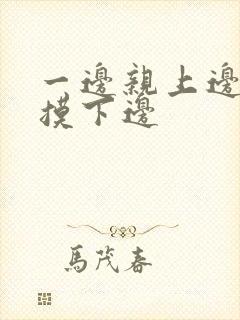 一邊親上邊
摸下邊
馬茂春